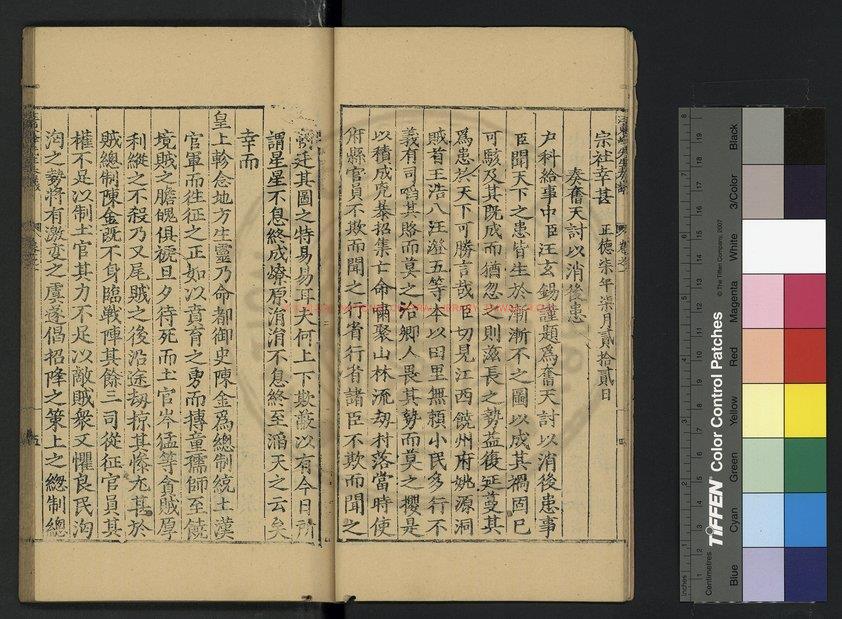 宗社幸甚　正德柒年柒月貳拾貳日
奏奮天討以消後患
户科給事中臣汪玄錫謹題爲奮天討以消後患事
臣聞天下之患皆生於漸漸不之圖以成其禍固已
可駭及其既成而猶忽之則滋長之勢益復延蔓其
爲患於天下可勝言哉臣切見江西饒州府姚源洞
賊首王浩八汪澄五等本以田里無頼小民多行不
義有司啗其賂而莫之治鄉人畏其勢而莫之攖是
以積成兇暴招集亡命嘯聚山林流刼村落當時使
府縣官員不欺而聞之行省行省諸臣不欺而聞之
朝廷其圖之特易易耳夫何上下欺蔽以有今日所
謂星星不息終成燎原涓涓不息終至滔天之云矣
幸而
皇上軫念地方生靈乃命都御史陳金爲總制統土漢
官軍而徃征之正如以賁育之勇而搏童孺師至饒
境賊之膽魄俱禠旦夕待死而土官岑猛等貪賊厚
利縱之不殺乃又尾賊之後沿途刼掠其慘尤甚於
賊總制陳金既不身臨戰陣其餘三司從征官員其
權不足以制土官其力不足以敵賊衆又懼良民洶
洶之勢將有激變之虞遂倡招降之策上之總制總
TIFFEN Color Control Patches
© The Tiffen Company, 2007
Blue
Cyan
Green
Yellow
Red
Magenta
White
3/Color
Black
Inches
Centimetres